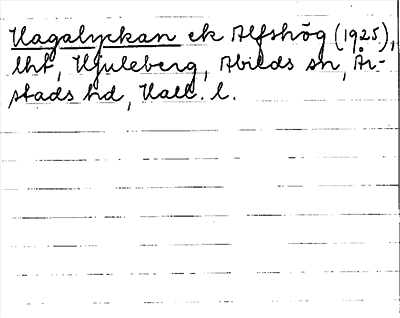 Hagalyckan ek Alfshög (1925),
lht, Hjuleberg, Abilds sn, År-
stads hd, Hall. l.